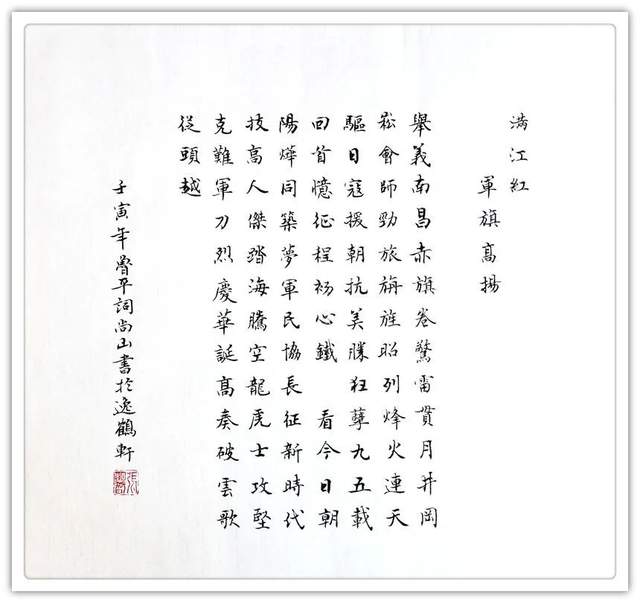 滿江紅
軍旗高揚
舉義南昌赤旗卷驚雷貫月井岡
崧會師勁旅旃旌昭列烽火連天
驅日寇援朝抗美勝狂孽九五載
回首憶征程初心鐵 看今日朝
陽燁同築夢軍民協長征新時代
技高人傑踏海騰空龍虎士攻堅
克難軍刀烈慶華誕高奏破雲歌
從頭越
壬寅年平詞尚山書於逸鶴軒